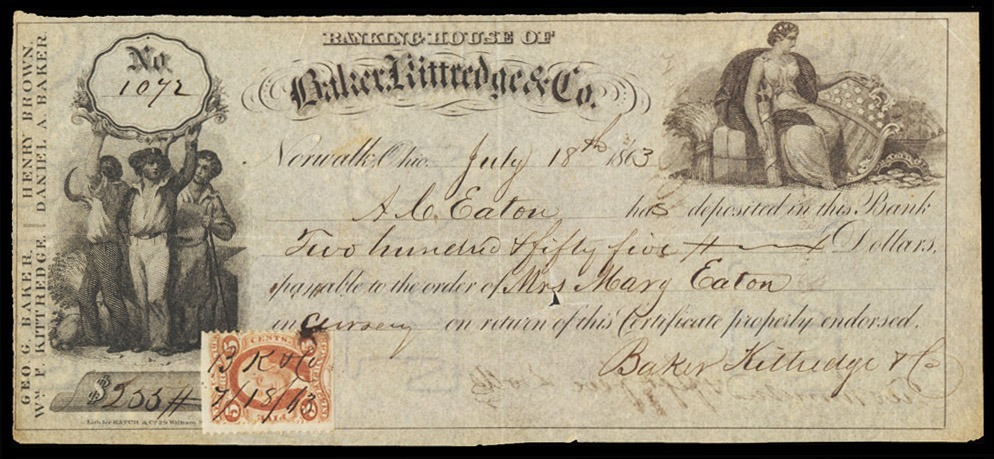 BANKING HOUSE OF
Baker, Kittredge & Co.
No.
1072
GEO. G. BAKER. HENRY BROWN.
WM. F. KITTREDGE. DANIEL A. BAKER
Norwalk, Ohio. July 18th 1863
A. C. Eaton has deposited in this Bank
Two hundred & fifty five Dollars,
payable to the order of Mrs Mary Eaton
in Currency on return of this Certificate properly endorsed.
Baker Kittredge & Co
$255
5 CENTS. 5
B K & Co
7/18/63
5 FIVE 5
Lith. by HATCH & Co 29 William